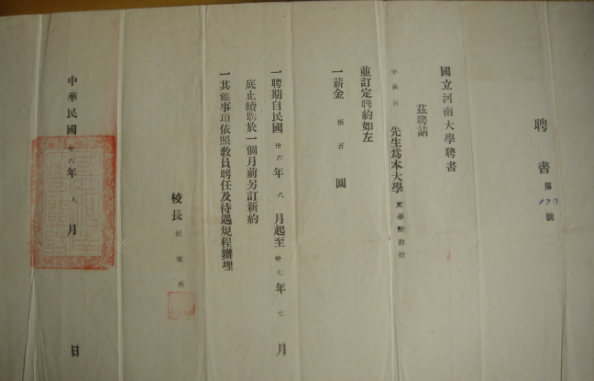 聘書 第170號
國立河南大學聘書
茲聘請
先生爲本大學文學院教授
並訂定聘約如左
一薪金 伍百 圓
一聘期自民國卅六年八月起至卅七年七月
底止續聘於一個月前另訂新約
一其餘事項依照教員聘任及待遇規程辦理
校長
中華民國卅六年 月 日